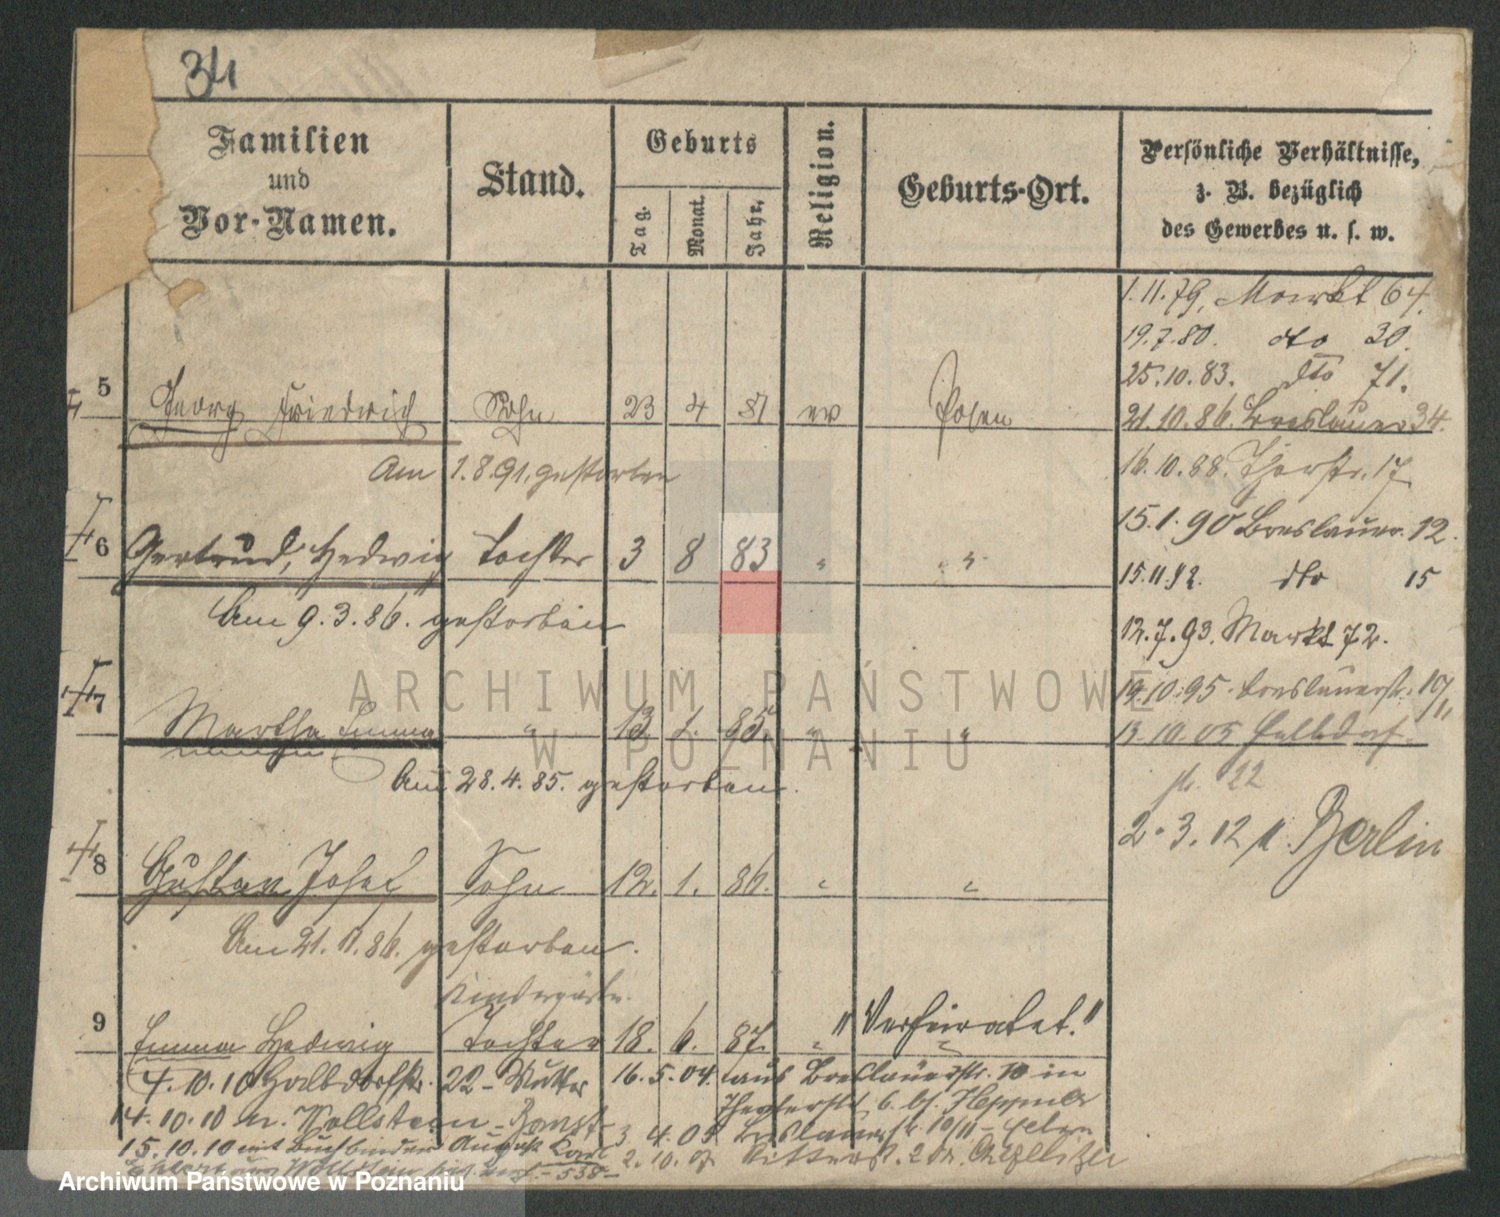 34
Familien
und
Vor-Namen.
Stand.
Geburts
Tag.
Monat.
Jahr.
Religion.
Geburts-Ort.
Persönliche Verhältnisse,
z. B. bezüglich
des Gewerbes u. s. w.
1.11.79, Markt 64.
19.7.80. dto 30.
25.10.83. dto 71.
5 Georg Friedrich Sohn 23 4 81 ev Posen
21.10.86. Breslauer 34.
Am 1.8.91. gestorben
16.10.88. Therstr. 17
15.1.90 Breslauer. 12.
6 Gertrud, Hedwig Tochter 3 8 83 " "
15.11.92. dto 15
Am 9.3.86. gestorben
12.7.93. Markt 72.
7 Martha Emma " 13 1. 85 " "
14.10.95. Breslauerstr. 10/11
13.10.05 Halbdorf
str. 22
Am 28.4.85. gestorben.
2.3.12 n. Berlin
8 Gustav Josef Sohn 12. 1. 86. " "
Am 21.11.86. gestorben.
Kindergärtn.
9 Emma Hedwig Tochter 18. 6. 87. " "Verheiratet."
4.10.10 Halbdorfstr. 22 - Mutter
16.5.04. aus Breslauerstr. 10 in
Theaterstr. 6. bf. Heppner
14.10.10 n. Wollstein
3 4.05 Breslauerstr. 10/11 - Eltern
15.10.10 mit Buchbinder August Carl
2.10.07 Ritterstr. 2
- 538 -
ARCHIWUM PAŃSTWOWE
W POZNANIU
Archiwum Państwowe w Poznaniu